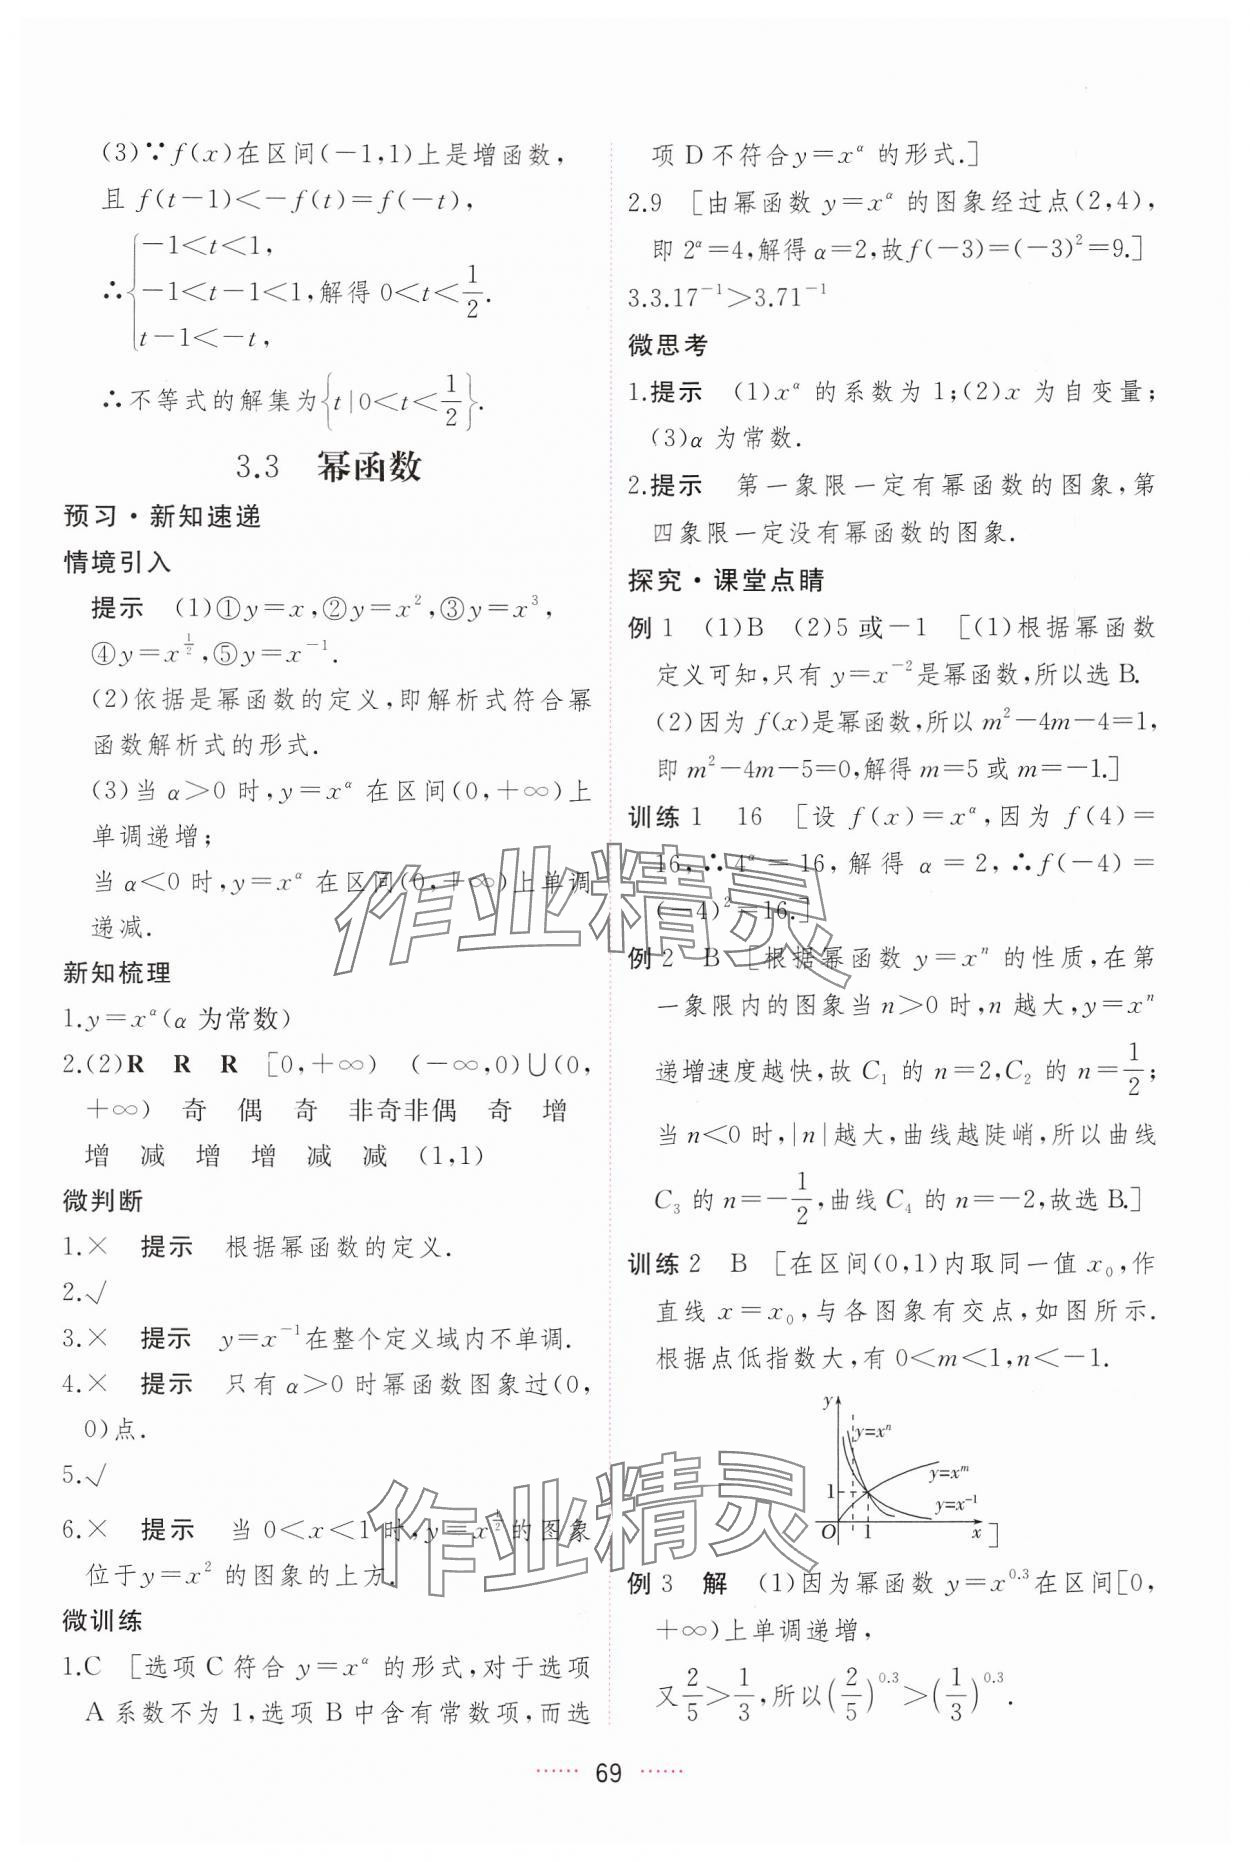 (3)∵f(x)在区间(-1,1)上是增函数,
且 f(t-1)<-f(t)=f(-t),
∴{-1<t<1,
-1<t-1<1,解得 0<t<1/2.
t-1<-t,
∴不等式的解集为{t|0<t<1/2}.
3.3 幂函数
预习·新知速递
情境引入
提示 (1)①y=x,②y=x²,③y=x³,
④y=x^{1/2},⑤y=x⁻¹.
(2)依据是幂函数的定义,即解析式符合幂
函数解析式的形式.
(3)当 α>0 时,y=x^α 在区间(0,+∞)上
单调递增;
当 α<0 时,y=x^α 在区间(0,+∞)上单调
递减.
新知梳理
1.y=x^α(α 为常数)
2.(2)R R R [0,+∞) (-∞,0)∪(0,
+∞) 奇 偶 奇 非奇非偶 奇 增
增 减 增 增 减 减 (1,1)
微判断
1.× 提示 根据幂函数的定义.
2.√
3.× 提示 y=x⁻¹在整个定义域内不单调.
4.× 提示 只有 α>0 时幂函数图象过(0,
0)点.
5.√
6.× 提示 当 0<x<1 时,y=x^{1/2}的图象
位于y=x² 的图象的上方.
微训练
1.C [选项 C 符合 y=x^α 的形式,对于选项
A 系数不为 1,选项 B 中含有常数项,而选
项 D 不符合 y=x^α 的形式.]
2.9 [由幂函数 y=x^α 的图象经过点(2,4),
即 2^α=4,解得 α=2,故 f(-3)=(-3)²=9.]
3.3.17⁻¹>3.71⁻¹
微思考
1.提示 (1)x^α 的系数为 1;(2)x 为自变量;
(3)α 为常数.
2.提示 第一象限一定有幂函数的图象,第
四象限一定没有幂函数的图象.
探究·课堂点睛
例 1 (1)B (2)5 或-1 [(1)根据幂函数
定义可知,只有 y=x⁻²是幂函数,所以选 B.
(2)因为 f(x)是幂函数,所以 m²-4m-4=1,
即 m²-4m-5=0,解得 m=5 或 m=-1.]
训练 1 16 [设 f(x)=x^α,因为 f(4)=
16,∴4^α=16,解得 α=2,∴f(-4)=
(-4)²=16.]
例 2 B [根据幂函数 y=xⁿ 的性质,在第
一象限内的图象当 n>0 时,n 越大,y=xⁿ
递增速度越快,故 C₁ 的 n=2,C₂ 的 n=1/2;
当 n<0 时,|n|越大,曲线越陡峭,所以曲线
C₃ 的 n=-1/2,曲线 C₄ 的 n=-2,故选 B.]
训练 2 B [在区间(0,1)内取同一值 x₀,作
直线 x=x₀,与各图象有交点,如图所示.
根据点低指数大,有 0<m<1,n<-1.
y
y=xⁿ
y=x^m
1
y=x⁻¹
O 1 x ]
例 3 解 (1)因为幂函数 y=x^{0.3}在区间[0,
+∞)上单调递增,
又2/5>1/3,所以(2/5)^{0.3}>(1/3)^{0.3}.
69
作业精灵
作业精灵